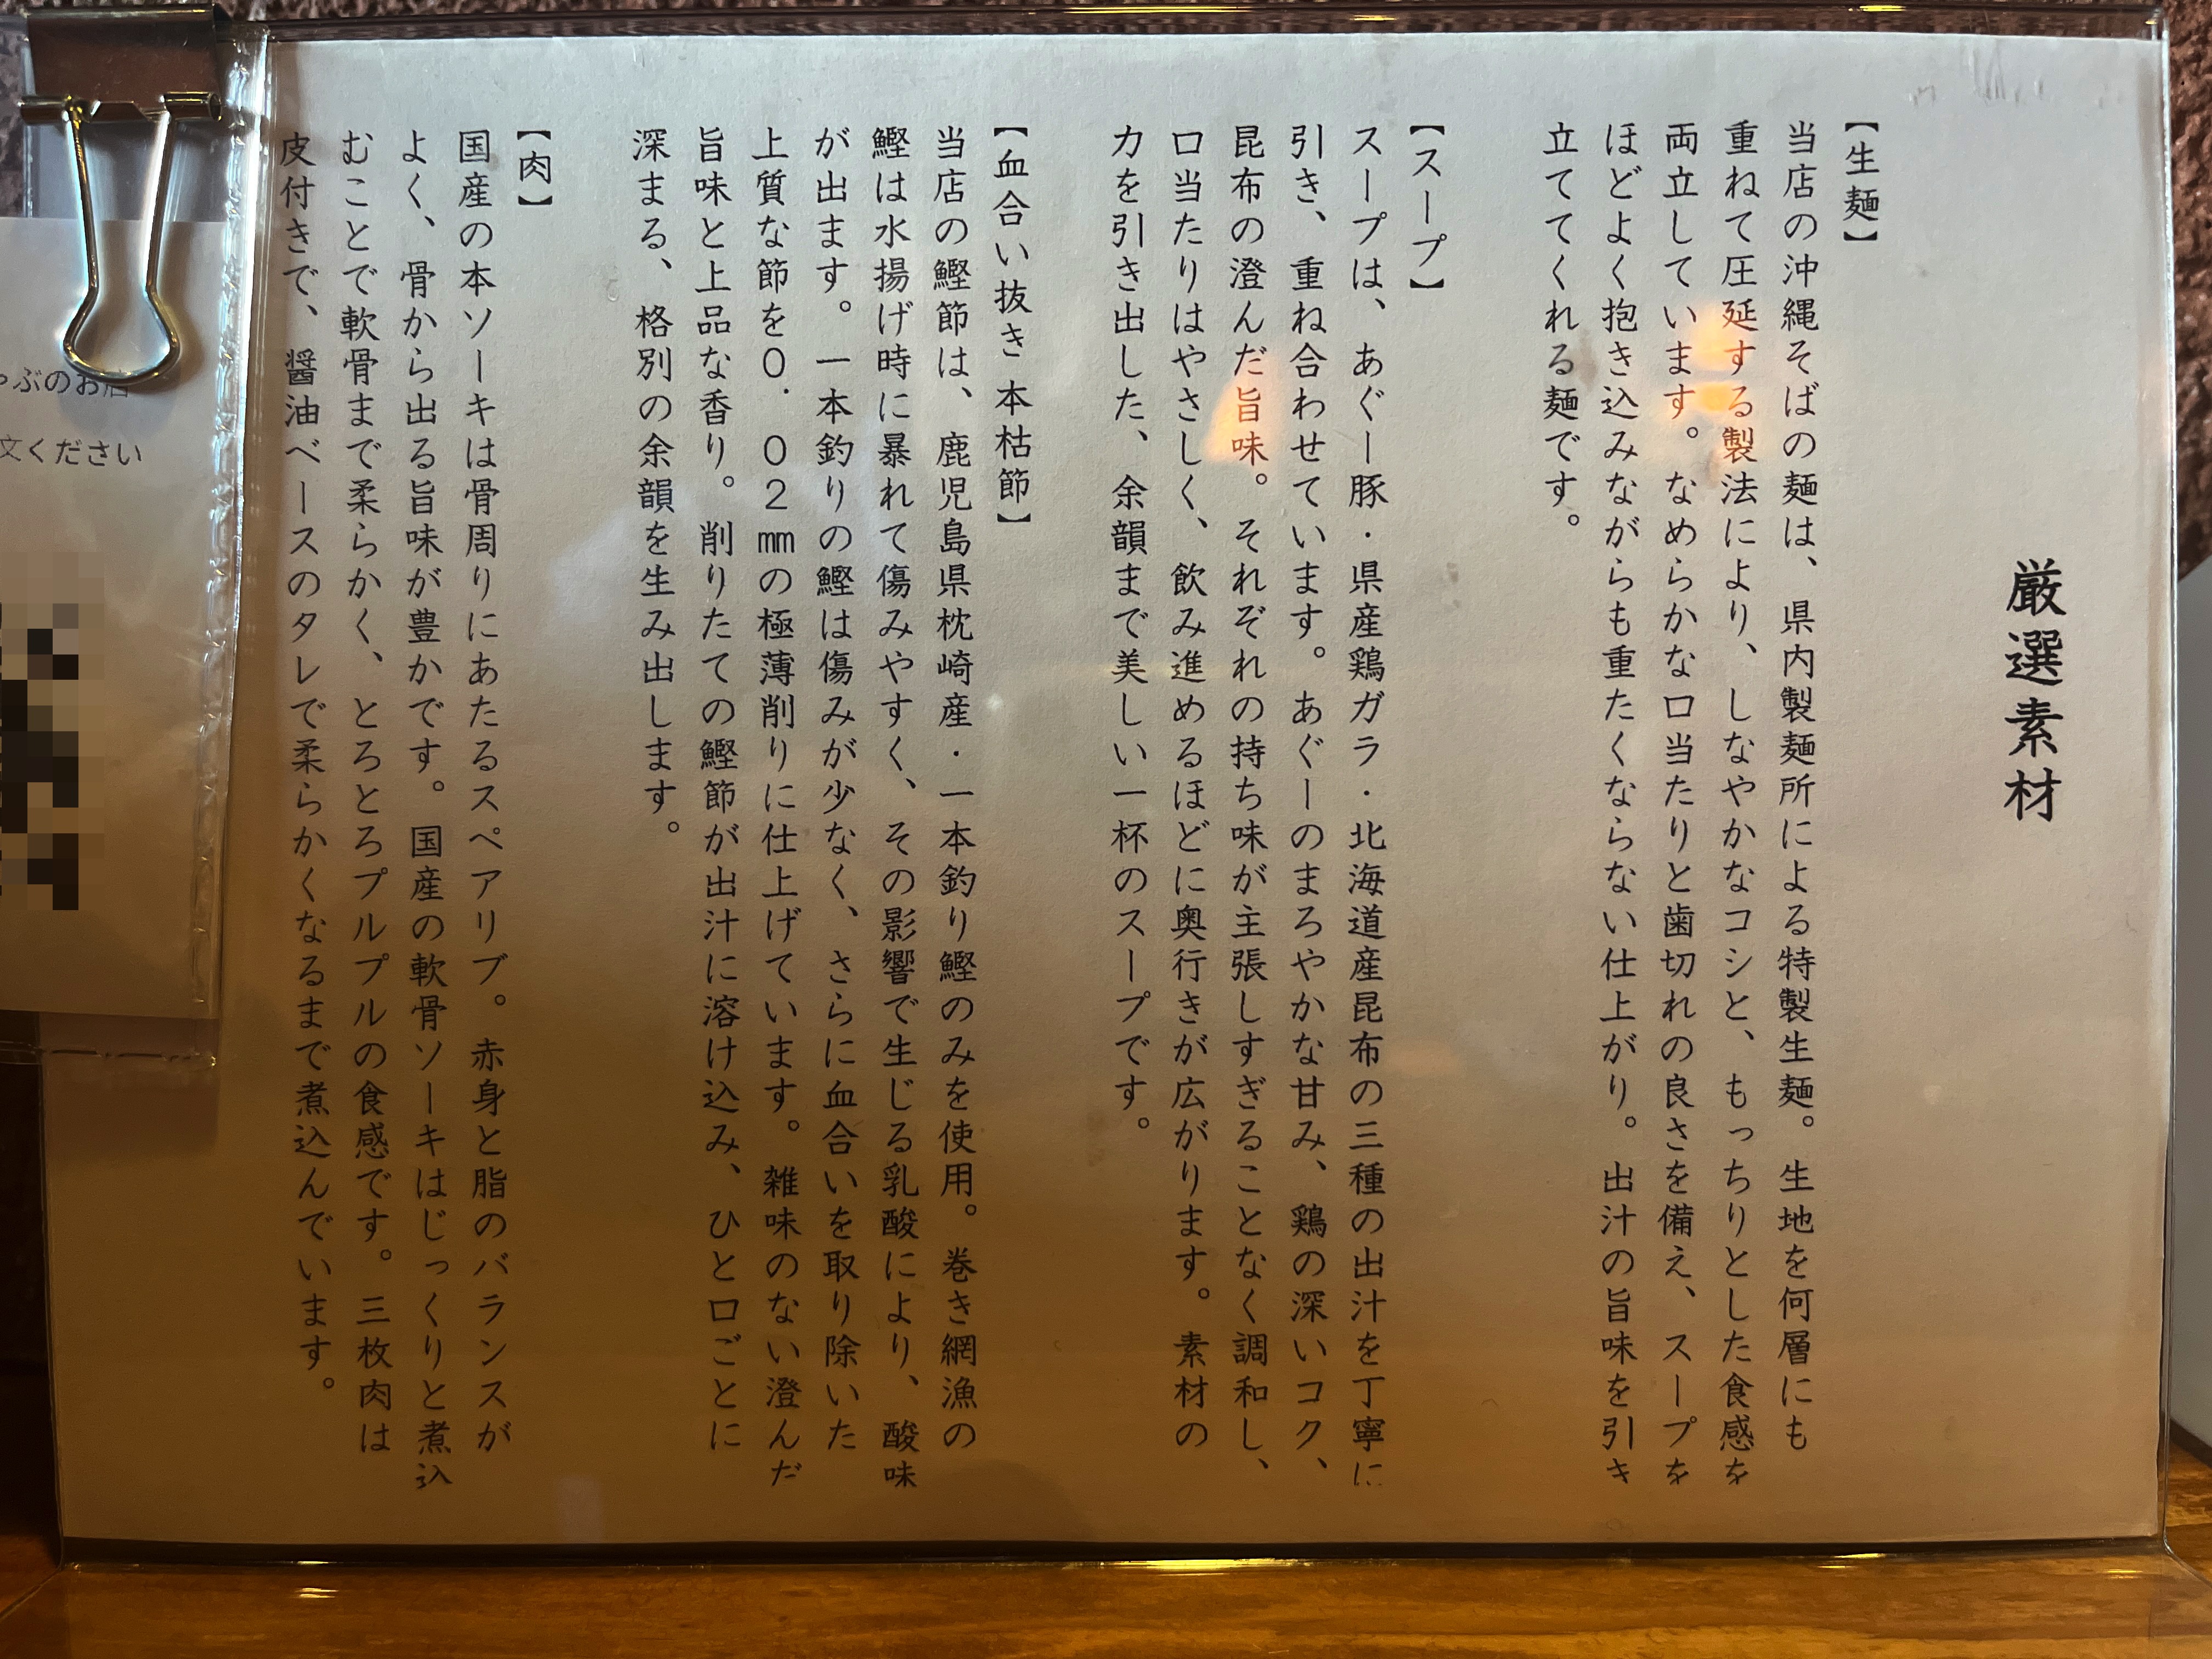 厳選素材
【生麺】
当店の沖縄そばの麺は、県内製麺所による特製生麺。生地を何層にも
重ねて圧延する製法により、しなやかなコシと、もっちりとした食感を
両立しています。なめらかな口当たりと歯切れの良さを備え、スープを
ほどよく抱き込みながらも重たくならない仕上がり。出汁の旨味を引き
立ててくれる麺です。
【スープ】
スープは、あぐー豚・県産鶏ガラ・北海道産昆布の三種の出汁を丁寧に
引き、重ね合わせています。あぐーのまろやかな甘み、鶏の深いコク、
昆布の澄んだ旨味。それぞれの持ち味が主張しすぎることなく調和し、
口当たりはやさしく、飲み進めるほどに奥行きが広がります。素材の
力を引き出した、余韻まで美しい一杯のスープです。
【血合い抜き本枯節】
当店の鰹節は、鹿児島県枕崎産・一本釣り鰹のみを使用。巻き網漁の
鰹は水揚げ時に暴れて傷みやすく、その影響で生じる乳酸により、酸味
が出ます。一本釣りの鰹は傷みが少なく、さらに血合いを取り除いた
上質な節を０．０２㎜の極薄削りに仕上げています。雑味のない澄んだ
旨味と上品な香り。削りたての鰹節が出汁に溶け込み、ひと口ごとに
深まる、格別の余韻を生み出します。
【肉】
国産の本ソーキは骨周りにあたるスペアリブ。赤身と脂のバランスが
よく、骨から出る旨味が豊かです。国産の軟骨ソーキはじっくりと煮込
むことで軟骨まで柔らかく、とろとろプルプルの食感です。三枚肉は
皮付きで、醤油ベースのタレで柔らかくなるまで煮込んでいます。
ゃぶのお店
文ください